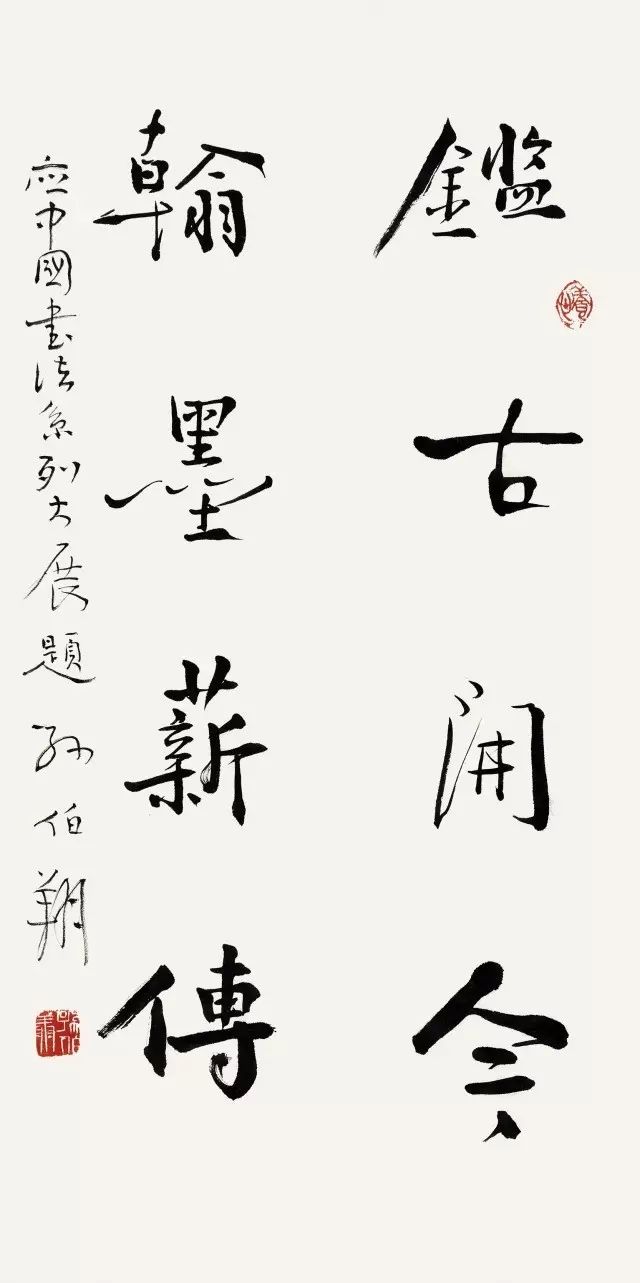 鑑古開今
翰墨薪傳
應中國書法系列大展題 孙伯翔